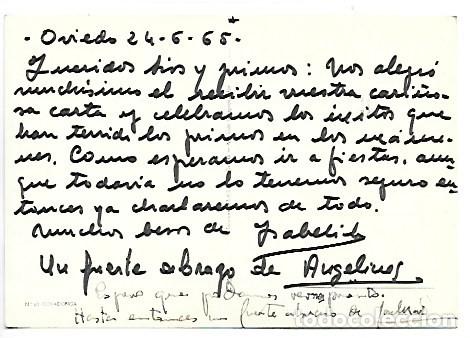 - Oviedo 24-6-65-
Queridos tios y primos: Nos alegró
muchisimo el recibir vuestra cariño-
sa carta y celebramos los éxitos que
han tenido los primos en los exáme-
nes. Como esperamos ir a fiestas, aun-
que todavia no lo tenemos seguro en-
tonces ya charlaremos de todo.
Muchos besos de Isabelita
Un fuerte abrazo de Angelines
Espero que podamos vernos pronto.
Hasta entonces un fuerte abrazo de
todocoleccion